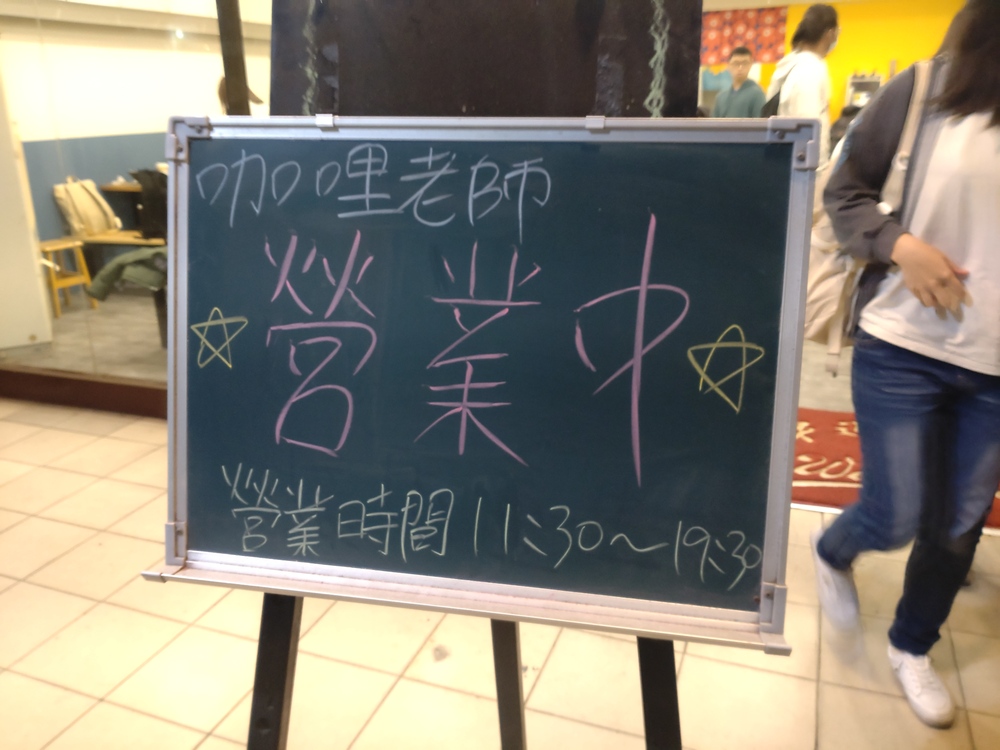 咖哩老師
營業中
營業時間 11:30～19:30